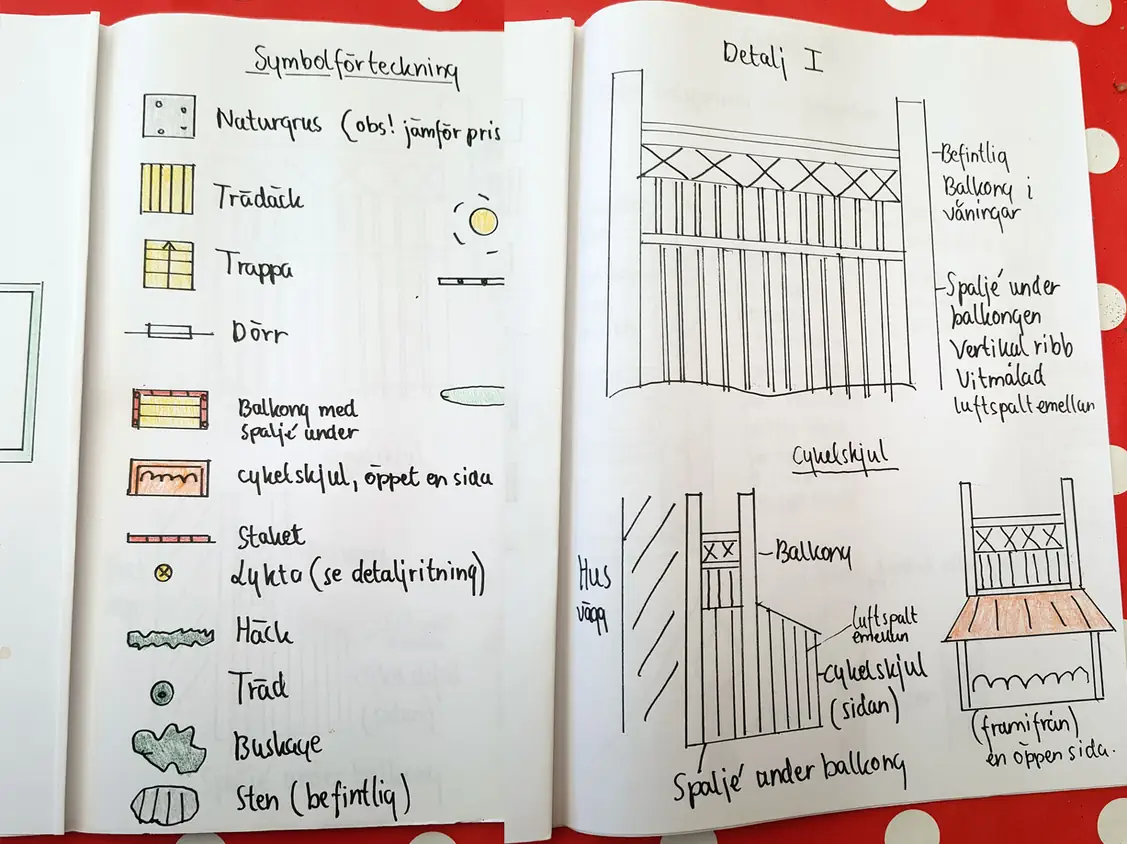 Symbolförteckning
Naturgrus (obs! jämför pris
Trädäck
Trappa
Dörr
Balkong med
spaljé under
cykelskjul, öppet en sida
Staket
Lykta (se detaljritning)
Häck
Träd
Buskage
Sten (befintlig)
Detalj I
Befintlig
Balkong i
våningar
Spaljé under
balkongen
Vertikal ribb
Vitmålad
luftspalt emellan
Cykelskjul
Hus
vägg
Balkong
luftspalt
emellan
cykelskjul
(sidan)
Spaljé under balkong
(framifrån)
en öppen sida.